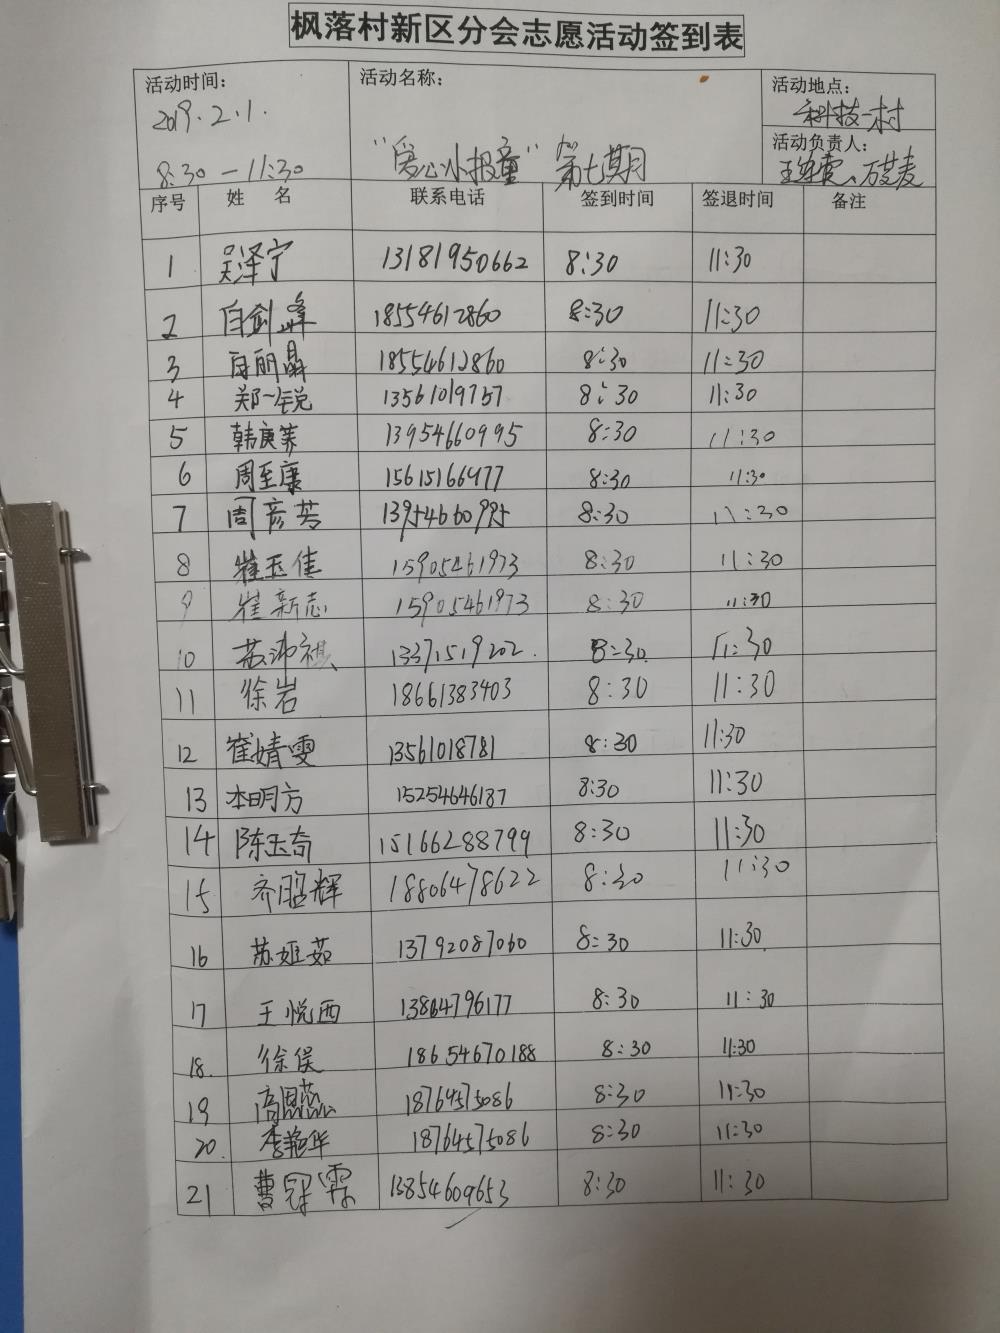 枫落村新区分会志愿活动签到表
活动时间： 活动名称： 活动地点：
2019.2.1. 科技一村
8:30—11:30 "爱心小报童"第七期月 活动负责人：
序号 姓名 联系电话 签到时间 签退时间 备注
1 吴泽宁 13181950662 8:30 11:30
2 白剑峰 18554612860 8:30 11:30
3 白丽晶 18554612860 8:30 11:30
4 郑一锐 13561019757 8:30 11:30
5 韩庚 13954660995 8:30 11:30
6 周至康 15615166477 8:30 11:30
7 周彦芳 13954660995 8:30 11:30
8 崔玉佳 15905461973 8:30 11:30
9 崔新志 15905461973 8:30 11:30
10 苏沛祺 13371519202. 8:30 11:30
11 徐岩 18661383403 8:30 11:30
12 崔婧雯 13561018781 8:30 11:30
13 本明方 15254646187 8:30 11:30
14 陈玉奇 15166288799 8:30 11:30
15 齐昭辉 18806478622 8:30 11:30
16 苏姬茹 13792087060 8:30 11:30
17 王悦西 13864796177 8:30 11:30
18. 徐俣 18654670188 8:30 11:30
19 高恩蕊 18764575086 8:30 11:30
20. 李艳华 18764575086 8:30 11:30
21 曹冠霖 13854609653 8:30 11:30